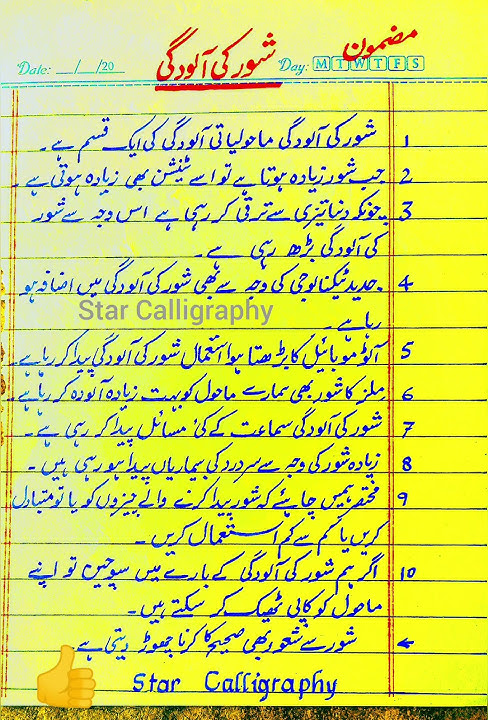 مضمون
شور کی آلودگی
Date: __/__/20 Day: M T W T F S
1 شور کی آلودگی ماحولیاتی آلودگی کی ایک قسم ہے۔
2 جب شور زیادہ ہوتا ہے تو اسے ٹینشن بھی زیادہ ہوتی ہے۔
3 چونکہ دنیا تیزی سے ترقی کر رہی ہے اس وجہ سے شور
کی آلودگی بڑھ رہی ہے۔
4 جدید ٹیکنالوجی کی وجہ سے بھی شور کی آلودگی میں اضافہ ہو
رہا ہے۔
Star Calligraphy
5 آٹو موبائیل کا بڑھتا ہوا استعمال شور کی آلودگی پیدا کر رہا ہے۔
6 ملز کا شور بھی ہمارے ماحول کو بہت زیادہ آلودہ کر رہا ہے۔
7 شور کی آلودگی سماعت کے کئی مسائل پیدا کر رہی ہے۔
8 زیادہ شور کی وجہ سے سر درد کی بیماریاں پیدا ہو رہی ہیں۔
9 مختصر ہمیں چاہئے کہ شور پیدا کرنے والے چیزوں کو یا تو متبادل
کریں یا کم سے کم استعمال کریں۔
10 اگر ہم شور کی آلودگی کے بارے میں سوچیں تو اپنے
ماحول کو کافی ٹھیک کر سکتے ہیں۔
شور سے شعور بھی صحیح کا کرنا چھوڑ دیتی ہے۔
Star Calligraphy